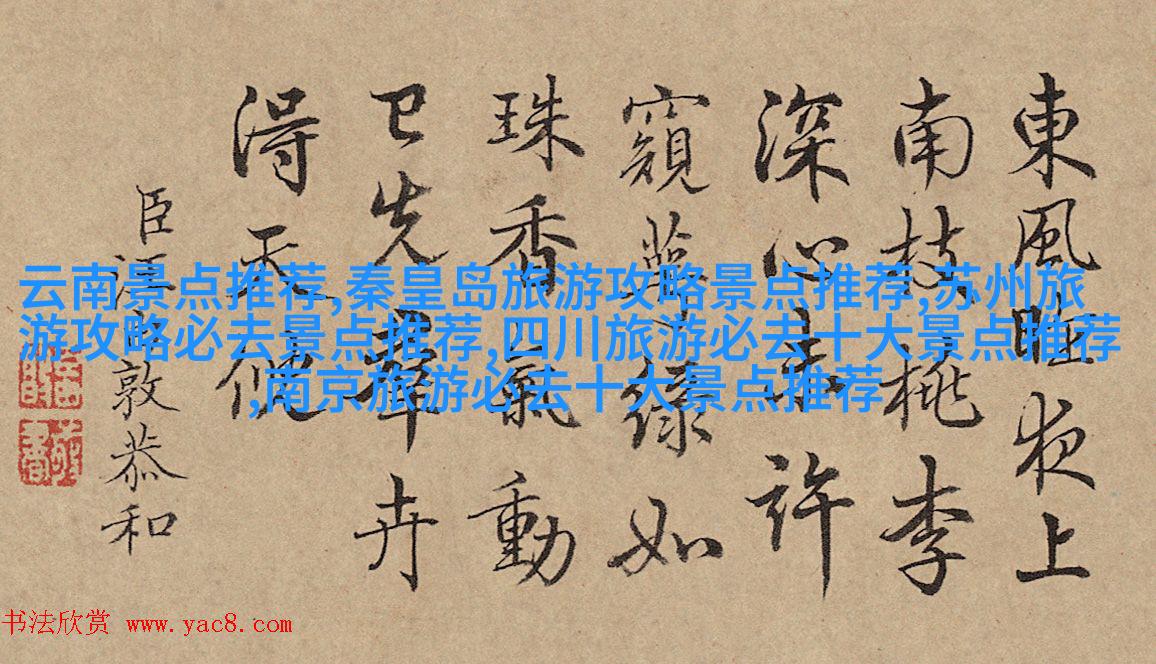 東風昨夜上
南枝桃李
深心未許
窺萼綠如
珠香氣動
已先羣卉
得天
臣汪由敦恭和
云南景点推荐,秦皇岛旅游攻略景点推荐,苏州旅
游攻略必去景点推荐,四川旅游必去十大景点推荐
,南京旅游必去十大景点推荐
书法欣赏 www.yac8.com